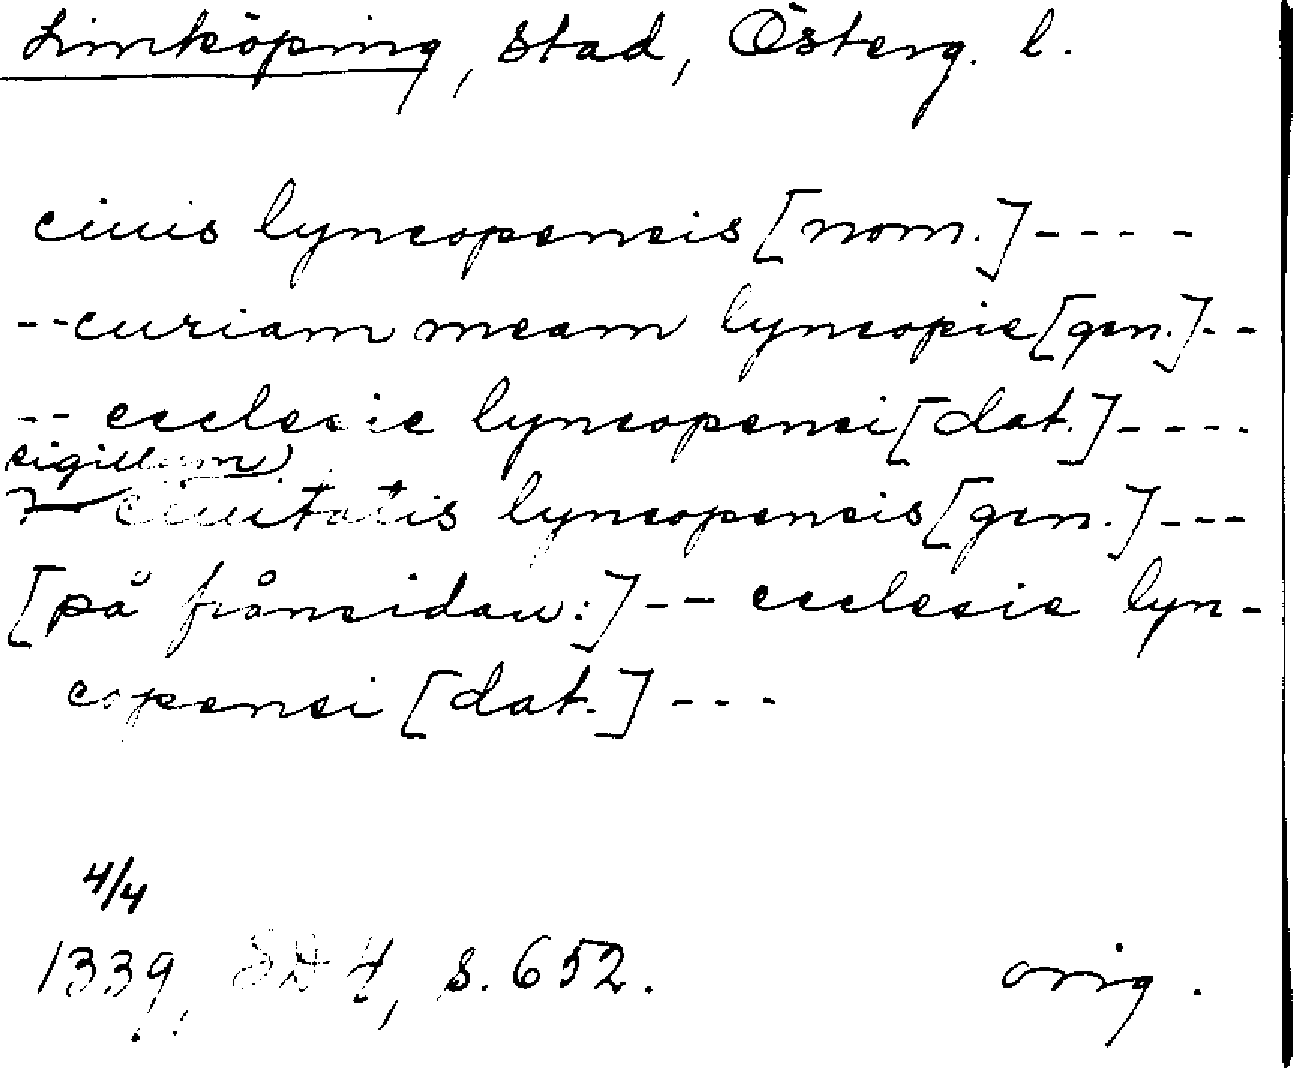 Linköping, stad, Österg. l.
ciuis lyncopensis [nom.] - - - -
-- curiam meam lyncopie [gen.] - -
-- ecclesie lyncopensi [dat.] - - - -
sigillum
ciuitatis lyncopensis [gen.] - - -
[på frånsidan:] -- ecclesie lyn-
copensi [dat.] - - -
4/4
1339, SD 4, s. 652. orig.